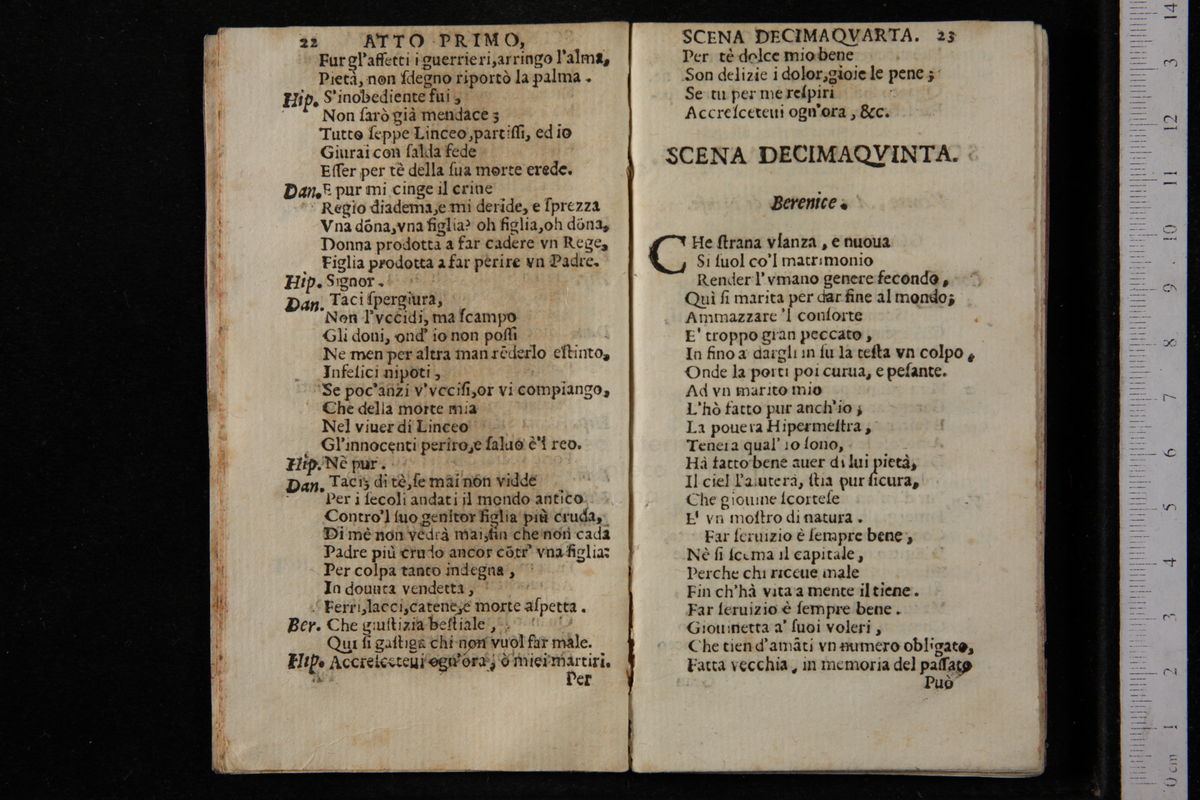 22 ATTO PRIMO,
Fur gl'affetti i guerrieri,arringo l'alma,
Pietà, non ſdegno riportò la palma .
Hip. S'inobediente fui ,
Non ſarò già mendace ;
Tutto ſeppe Linceo,partiſſi, ed io
Giurai con ſalda fede
Eſſer per tè della ſua morte erede.
Dan. E pur mi cinge il crine
Regio diadema,e mi deride, e ſprezza
Vna dōna,vna figlia? oh figlia,oh dōna,
Donna prodotta a far cadere vn Rege,
Figlia prodotta a far perire vn Padre.
Hip. Signor .
Dan. Taci ſpergiura,
Non l'vccidi, ma ſcampo
Gli doni, ond' io non poſſi
Ne men per altra man rēderlo eſtinto,
Infelici nipoti ,
Se poc'anzi v'vcciſi,or vi compiango,
Che della morte mia
Nel viuer di Linceo
Gl'innocenti periro,e ſaluo è'l reo.
Hip. Nè pur .
Dan. Taci; di tè,ſe mai non vidde
Per i ſecoli andati il mondo antico
Contro'l ſuo genitor figlia più cruda,
Di mè non vedrà mai,fin che non cada
Padre più crudo ancor cōtr' vna figlia:
Per colpa tanto indegna ,
In douuta vendetta ,
Ferri,lacci,catene,e morte aſpetta .
Ber. Che giuſtizia beſtiale ,
Qui ſi gaſtiga chi non vuol far male.
Hip. Accreſceteui ogn'ora, ò miei martiri.
Per
SCENA DECIMAQVARTA. 23
Per tè dolce mio bene
Son delizie i dolor,gioie le pene ;
Se tu per me reſpiri
Accreſceteui ogn'ora , &c.
SCENA DECIMAQVINTA.
Berenice .
CHe ſtrana vſanza , e nuoua
Si ſuol co'l matrimonio
Render l'vmano genere fecondo ,
Quì ſi marita per dar fine al mondo;
Ammazzare 'l conſorte
E' troppo gran peccato ,
In fino a dargli in ſu la teſta vn colpo ,
Onde la porti poi curua, e peſante.
Ad vn marito mio
L'hò fatto pur anch'io ;
La pouera Hipermeſtra ,
Tenera qual' io ſono,
Hà fatto bene auer di lui pietà,
Il ciel l'aiuterà, ſtia pur ſicura,
Che giouine ſcorteſe
E' vn moſtro di natura .
Far ſeruizio è ſempre bene ,
Nè ſi ſcema il capitale ,
Perche chi riceue male
Fin ch'hà vita a mente il tiene .
Far ſeruizio è ſempre bene .
Giouinetta a' ſuoi voleri ,
Che tien d'amāti vn numero obligato,
Fatta vecchia , in memoria del paſſato
Può
0 cm 1 2 3 4 5 6 7 8 9 10 11 12 13 14